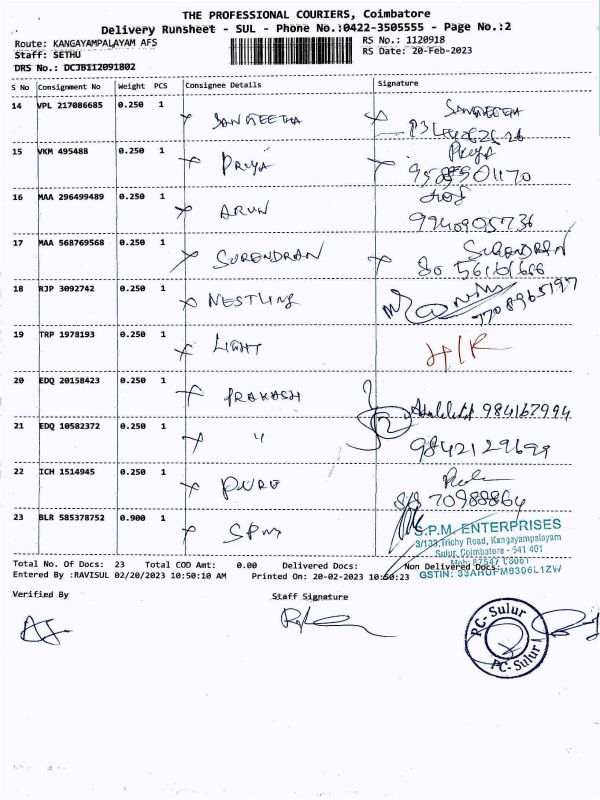 THE PROFESSIONAL COURIERS, Coimbatore
Delivery Runsheet - SUL - Phone No.:0422-3505555 - Page No.:2
Route: KANGAYAMPALAYAM AFS
Staff: SETHU
DRS No.: DCJB112091802
RS No.: 1120918
RS Date: 20-Feb-2023
S No Consignment No Weight PCS Consignee Details Signature
14 VPL 217086685 0.250 1 SANGEETHA SANGEETHA
15 VKM 495488 0.250 1 PRIYA Priya
16 MAA 296499489 0.250 1 ARUN
9940905736
17 MAA 568769568 0.250 1 SURENDRAN SURENDRAN
18 RJP 3092742 0.250 1 NESTLING
7708965197
19 TRP 1978193 0.250 1 LIGHT H/R
20 EDQ 20158423 0.250 1 PRAKASH
984167994
21 EDQ 10582372 0.250 1 "
9842129699
22 ICH 1514945 0.250 1 PURE
23 BLR 585378752 0.900 1 SPM
S.P.M. ENTERPRISES
3/133, Trichy Road, Kangayampalayam
Sulur, Coimbatore - 641 401
Total No. Of Docs: 23 Total COD Amt: 0.00 Delivered Docs: Non Delivered Docs:
Entered By :RAVISUL 02/20/2023 10:50:10 AM Printed On: 20-02-2023 10:50:23
Verified By Staff Signature
PC-Sulur
PC-Sulur